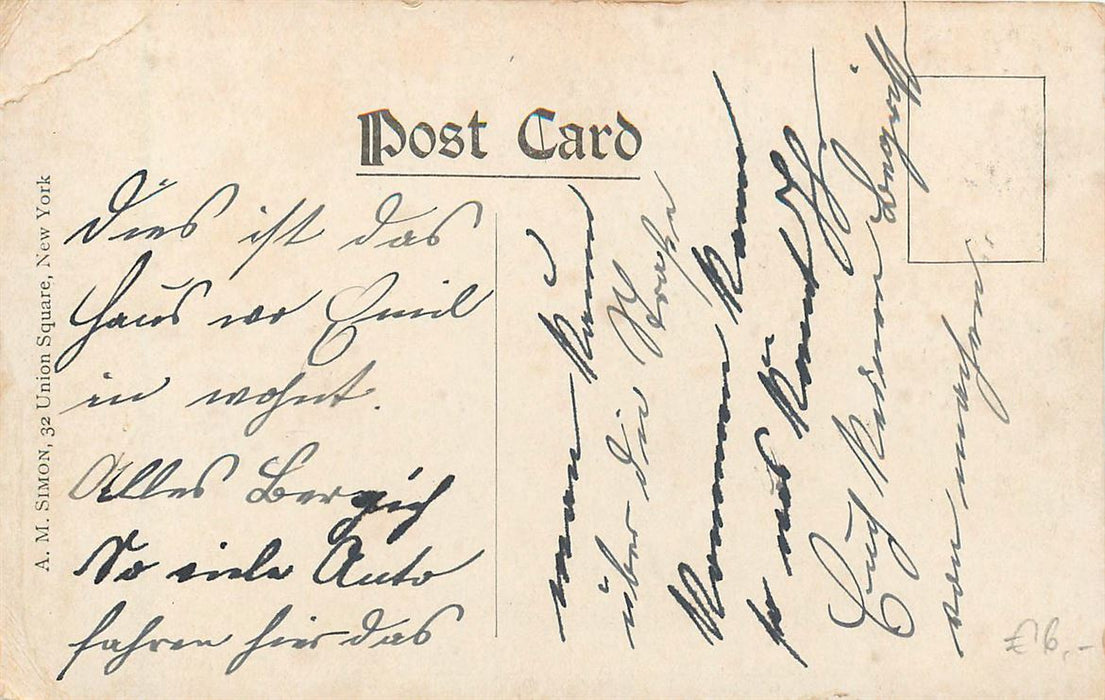 Post Card
A. M. SIMON, 32 Union Square, New York
Dies ist das
Haus wo Emil
in wohnt.
Alles Bergich
So viele Auto
fahren hier das
man kaum
über die Straße
kommen kann
so was könnt Ihr
Euch keinen Begriff
von machen.
£6,-